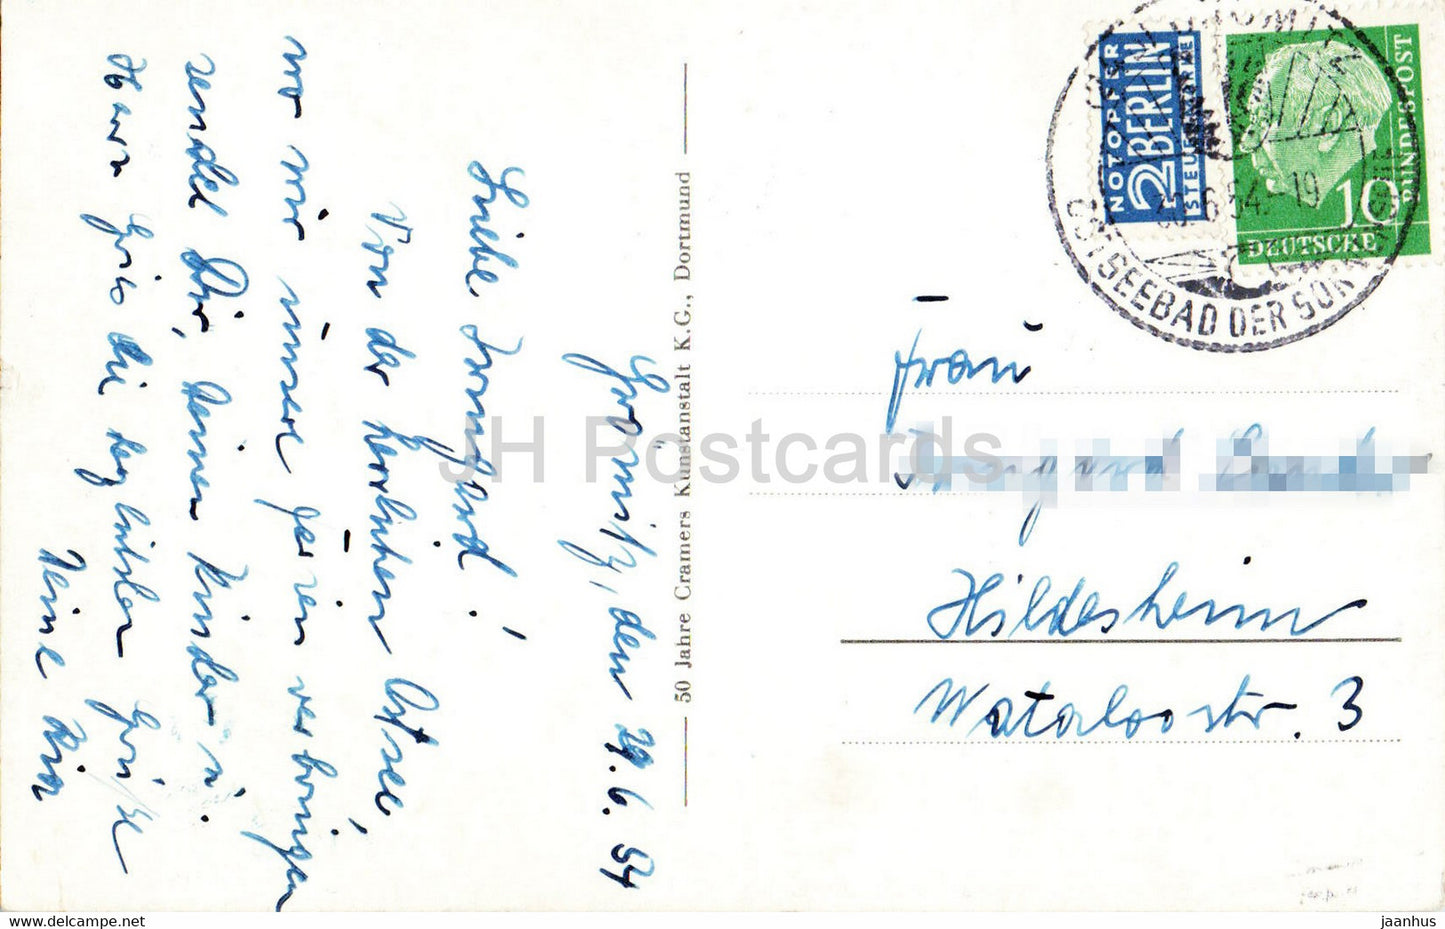 Grömitz, den 29.6.54
Liebe Irmgard!
Von der herrlichen Ostsee,
wo wir unsere Ferien verbringen
sendet Dir, Deinen Kinder u.
Herrn die herzlichsten Grüße
Deine
50 Jahre Cramers Kunstanstalt K.G., Dortmund
NOTOPFER
2 BERLIN
STEUERMARKE
DEUTSCHE
BUNDESPOST
10
6.54.-19
OSTSEEBAD DER SONNENSEITE
Frau
Hildesheim
Waterloostr. 3
JH Postcards
www.delcampe.net
jaanhus